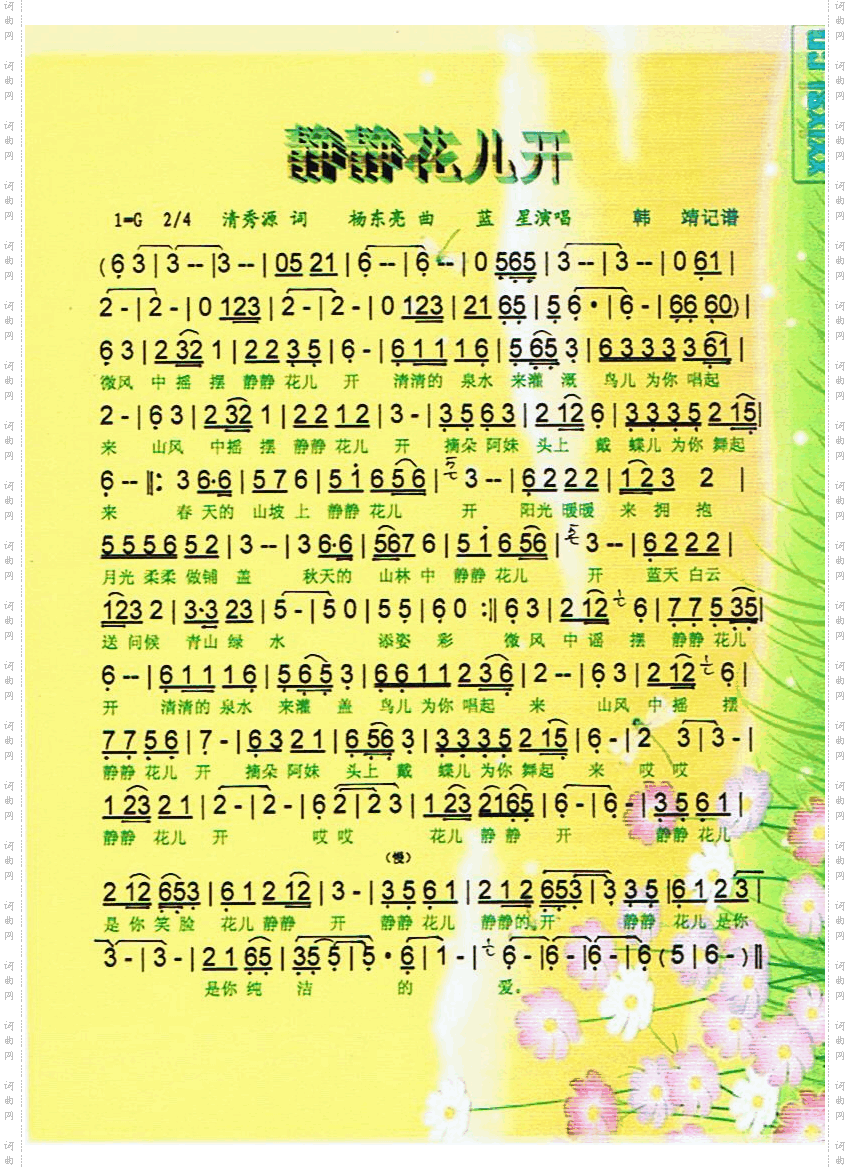 静静花儿开
1=G 2/4 清秀源 词 杨东亮 曲 蓝 星演唱 韩 靖记谱
(6 3 | 3 -- | 3 -- | 05 21 | 6 -- | 6 -- | 0 565 | 3 -- | 3 -- | 0 61 |
2 - | 2 - | 0 123 | 2 - | 2 - | 0 123 | 21 65 | 5 6 · | 6 - | 66 60) |
6 3 | 2 32 1 | 2 2 3 5 | 6 - | 6 1 1 1 1 6 | 5 65 3 | 6 3 3 3 3 61 |
微风 中 摇 摆 静静 花儿 开 清清的 泉水 来灌 溉 鸟儿 为你 唱起
2 - | 6 3 | 2 32 1 | 2 2 1 2 | 3 - | 3 5 6 3 | 2 12 6 | 3 3 3 5 2 15 |
来 山风 中摇 摆 静静 花儿 开 摘朵 阿妹 头上 戴 蝶儿 为你 舞起
6 -- ‖: 3 6·6 | 5 7 6 | 5 1 6 5 6 | 3 -- | 6 2 2 2 | 1 2 3 2 |
来 春 天的 山坡 上 静静 花儿 开 阳光 暖暖 来 拥 抱
5 5 5 6 5 2 | 3 -- | 3 6·6 | 567 6 | 5 1 6 56 | 3 -- | 6 2 2 2 |
月光 柔柔 做铺 盖 秋天的 山林 中 静静 花儿 开 蓝天 白云
123 2 | 3·3 23 | 5 - | 5 0 | 5 5 | 6 0 :‖ 6 3 | 2 12 6 | 7 7 5 35 |
送 问候 青山 绿 水 添姿 彩 微 风 中 谣 摆 静静 花儿
6 -- | 6 1 1 1 1 6 | 5 6 5 3 | 6 6 1 1 2 3 6 | 2 -- | 6 3 | 2 12 6 |
开 清清的 泉水 来灌 盖 鸟儿 为你 唱起 来 山风 中 摇 摆
7 7 5 6 | 7 - | 6 3 2 1 | 6 56 3 | 3 3 3 5 2 15 | 6 - | 2 3 | 3 - |
静静 花儿 开 摘朵 阿妹 头上 戴 蝶儿 为你 舞起 来 哎 哎
1 23 2 1 | 2 - | 2 - | 6 2 | 2 3 | 1 23 2165 | 6 - | 6 - | 3 5 6 1 |
静静 花儿 开 哎 哎 花儿 静 静 开 静静 花儿
(慢)
2 12 653 | 6 1 2 12 | 3 - | 3 5 6 1 | 2 1 2 653 | 3 3 5 | 6 1 2 3 |
是 你 笑 脸 花儿 静静 开 静静 花儿 静静的 开 静静 花儿 是你
3 - | 3 - | 2 1 65 | 35 5 | 5 · 6 | 1 - | 6 - | 6 - | 6 - | 6 (5 | 6 - ) ‖
是你 纯 洁 的 爱。